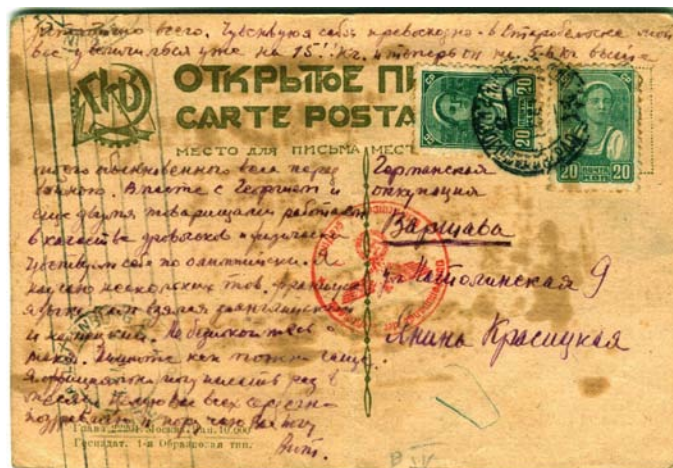 достаточно всего. Чувствую себя превосходно - в Старобельске мой
вес увеличился уже на 15!! кг. и теперь он на 5-6 кг выше
ОТКРЫТОЕ ПИ
CARTE POSTA
МЕСТО ДЛЯ ПИСЬМА МЕСТ
20
ПОЧТА
20
моего обыкновенного веса перед
войною. Вместе с Георгием и
еще двумя товарищами работаем
в качестве дровосеков и физически
чувствуем себя по олимпийски. Я
научаю нескольких тов. французск.
языку, сам взялся за английский
и немецкий. Не беспокойтесь о
меня. Пишите как можно чаще
Я официально могу писать раз в
месяц. Целую вас всех сердечно
поздравляю и
Вит.
Германская
оккупация
Варшава
ул. Натолинская 9
Янина Красицкая
Москва. 10.000
Госиздат. 1-я Образцовая тип.